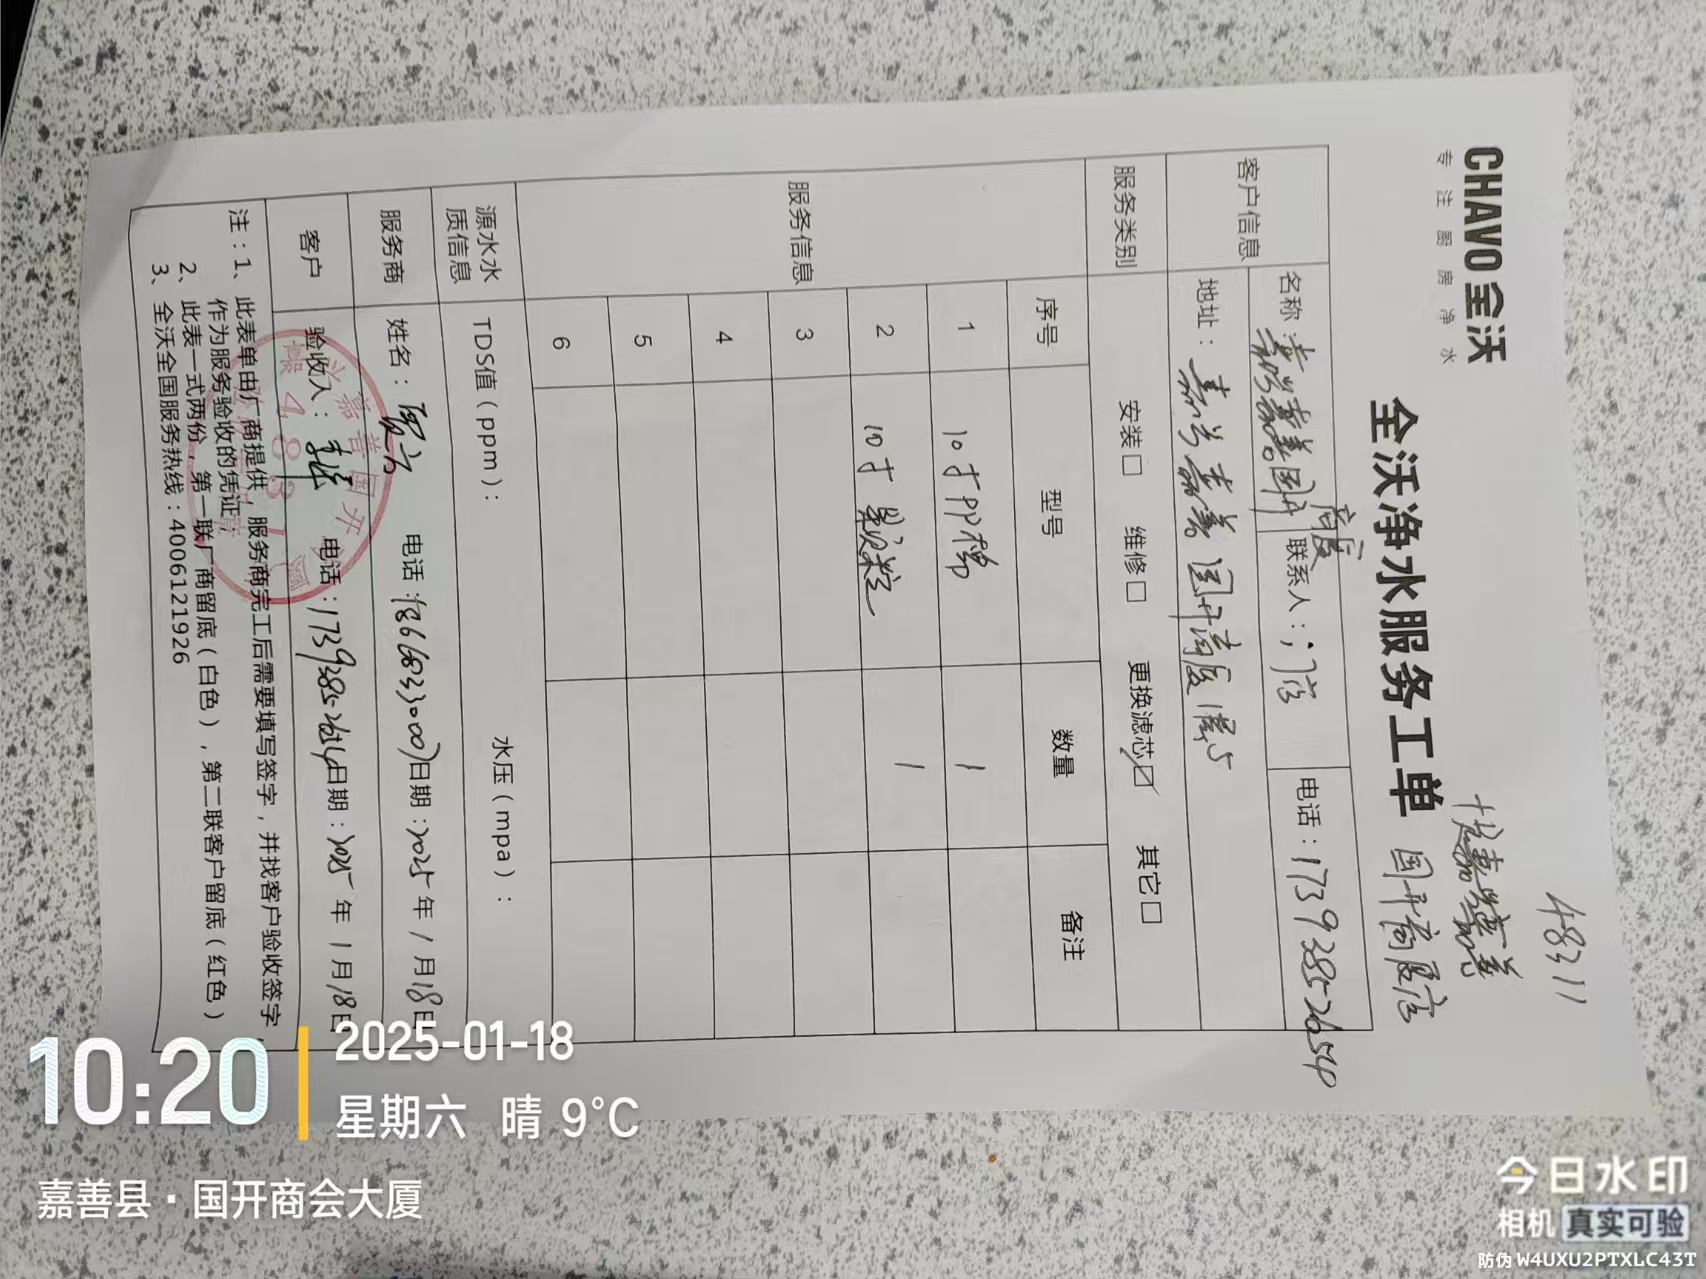 48311
CHAVO 全沃
专注厨房净水
嘉兴嘉善
全沃净水服务工单 国开商厦店
客户信息
名称：嘉兴嘉善国开商厦
联系人：
电话：17392852654
地址：嘉兴嘉善国开商厦1层
服务类别 安装□ 维修□ 更换滤芯☑ 其它□
服务信息
序号 型号 数量 备注
1 10寸PP棉 1
2 10寸 1
3
4
5
6
源水水质信息 TDS值（ppm）： 水压（mpa）：
服务商 姓名： 电话： 日期：2025年1月18日
客户 验收人： 电话：17392852654 日期：2025年1月18日
注：1、此表单由厂商提供，服务商完工后需要填写签字，并找客户验收签字，
作为服务验收的凭证；
2、此表一式两份，第一联厂商留底（白色），第二联客户留底（红色）
3、全沃全国服务热线：4006121926
嘉善国开
48311
10:20
2025-01-18
星期六 晴 9°C
嘉善县·国开商会大厦
今日水印
相机 真实可验
防伪 W4UXU2PTXLC43T